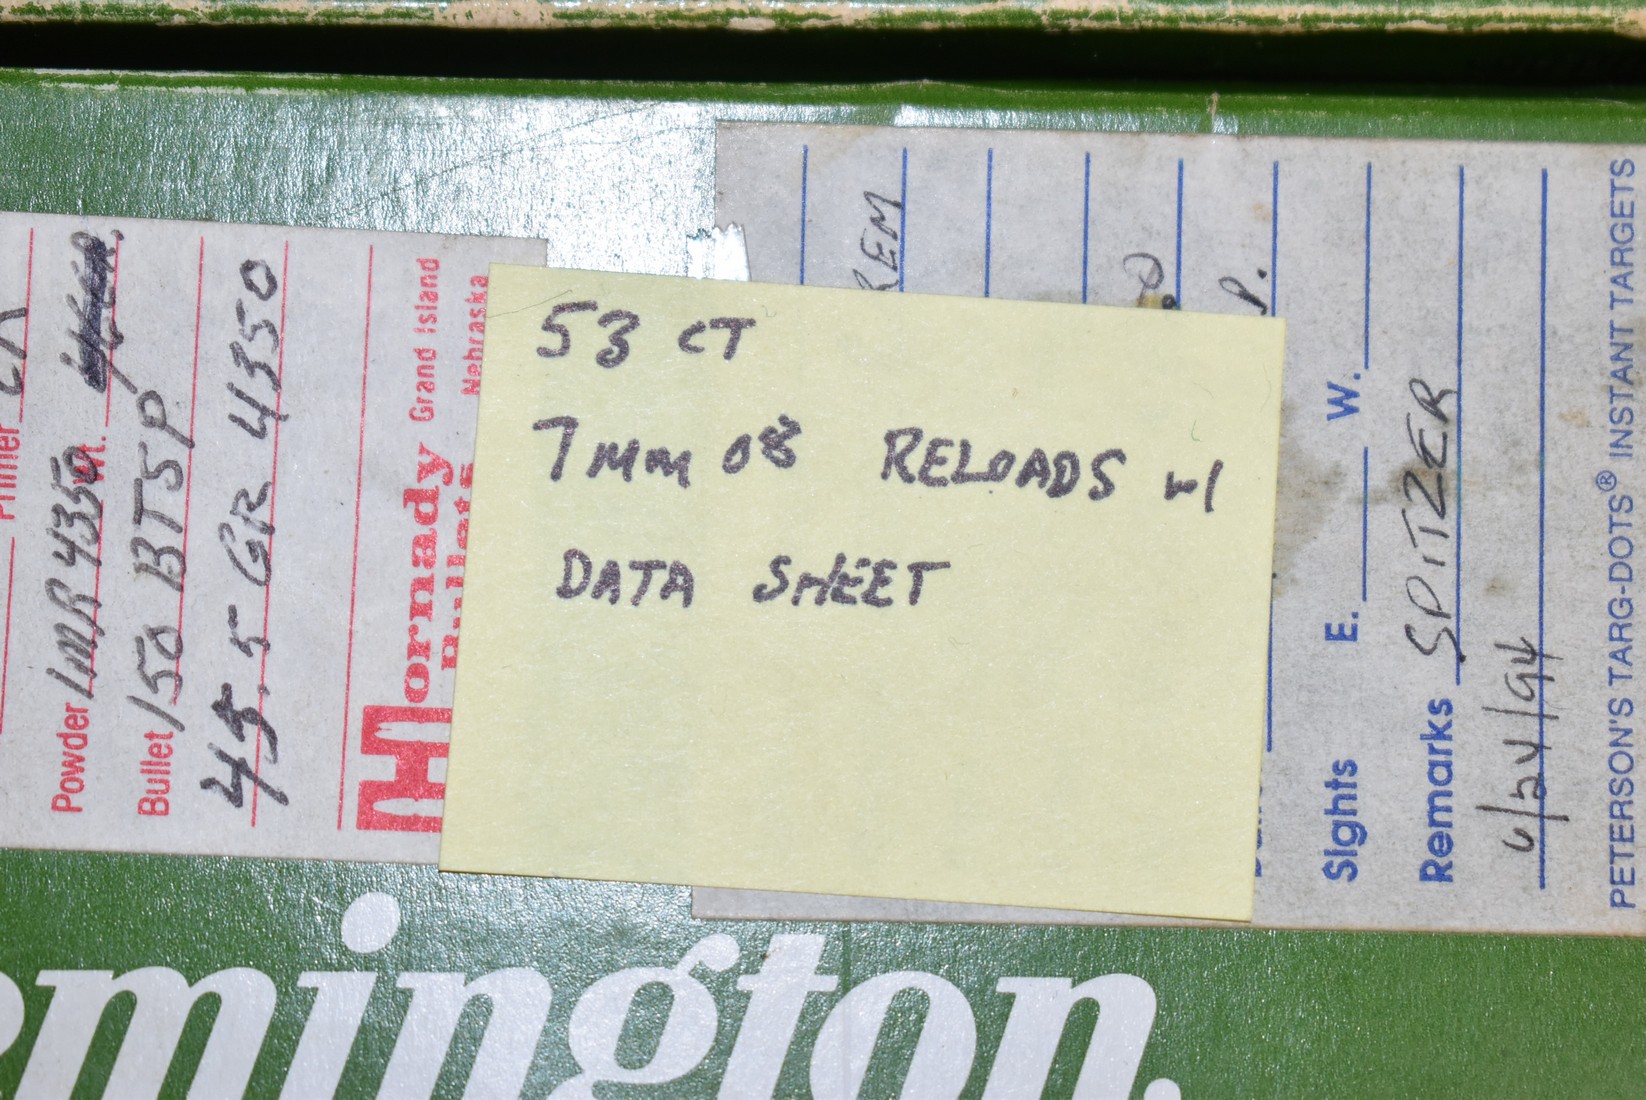 53 CT
7mm 08 RELOADS w/
DATA SHEET
Primer
Powder IMR 4350 Wt.
Bullet 150 BTSP
45.5 GR 4350
Hornady
Grand Island
Nebraska
REM
P.
Sights E. W.
Remarks SPITZER
6/24/94
PETERSON'S TARG-DOTS® INSTANT TARGETS
mington.